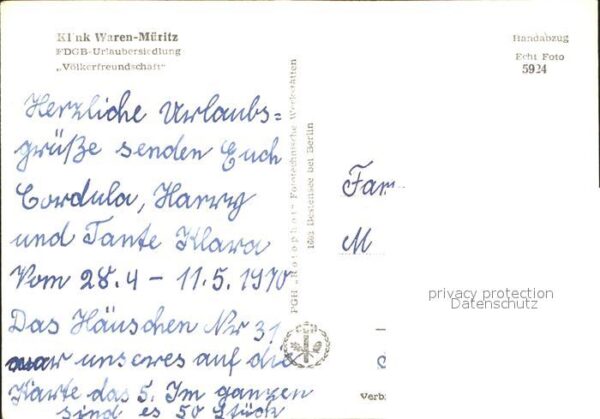 Klink Waren-Müritz
FDGB-Urlaubersiedlung
„Völkerfreundschaft"
Herzliche Urlaubs=
grüße senden Euch
Cordula, Harry
und Tante Klara
Vom 28.4 - 11.5.1970
Das Häuschen Nr 31
war unseres auf die
Karte das 5. Im ganzen
sind es 50 Stück
PGH „Rotophot" Fototechnische Werkstätten
1602 Bestensee bei Berlin
Handabzug
Echt Foto
5924
Fam
M
privacy protection
Datenschutz